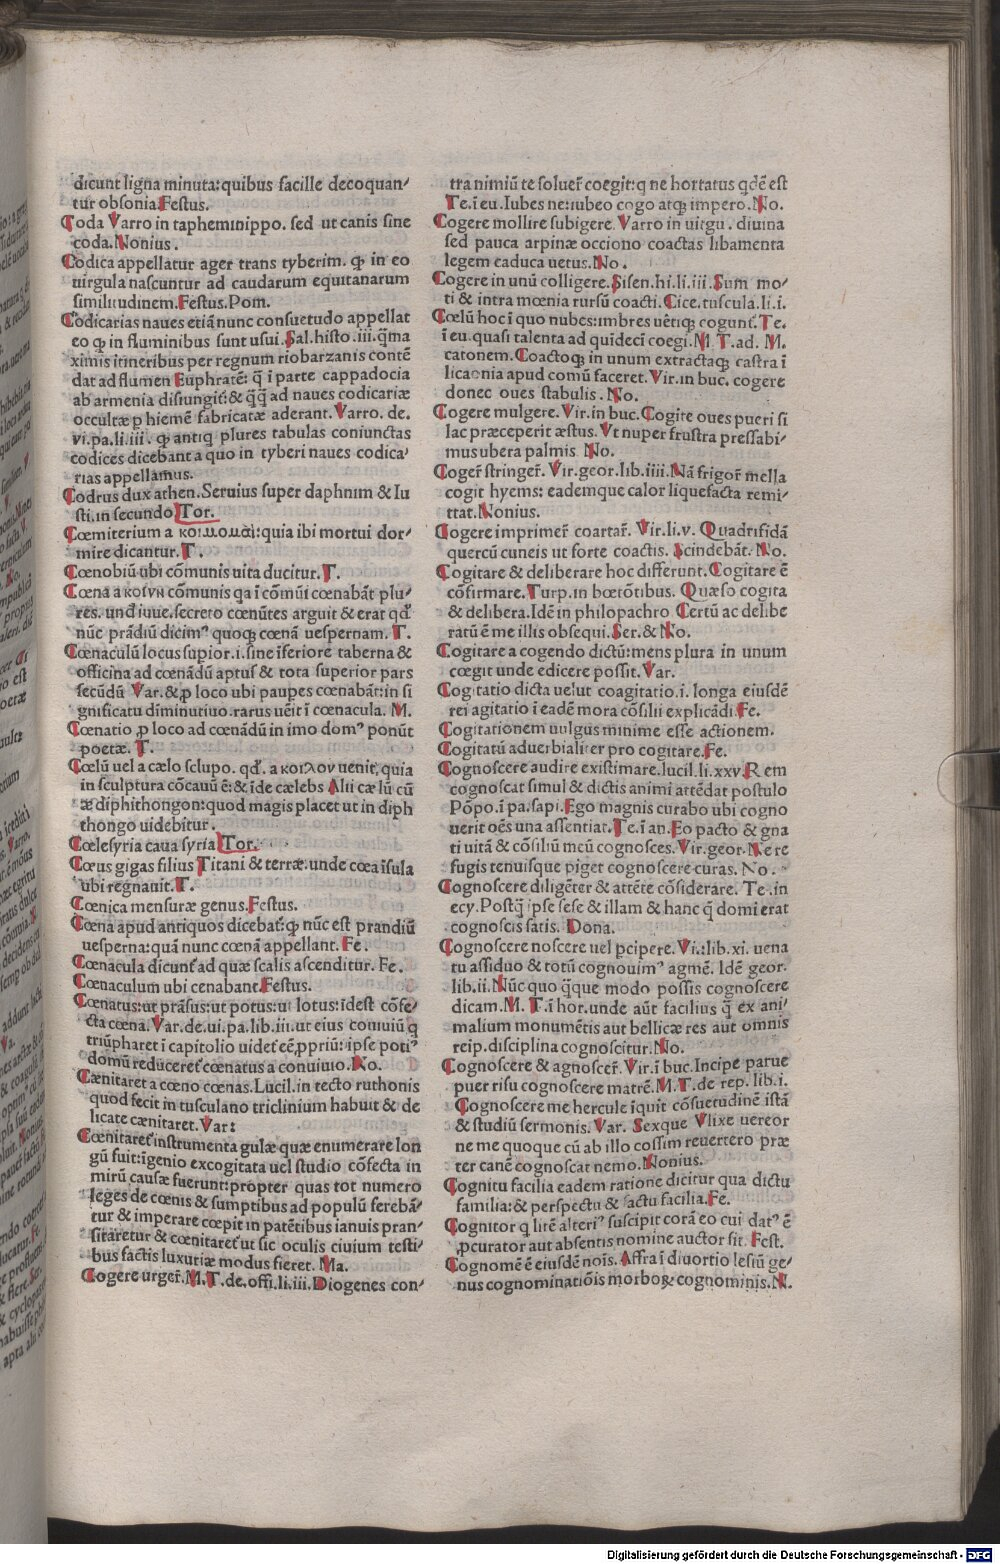 dicunt ligna minuta:quibus facille decoquan/
tur obsonia.Festus.
Coda Varro in tapheminippo. sed ut canis sine
coda.Nonius.
Codica appellatur ager trans tyberim. qꝫ in eo
uirgula nascuntur ad caudarum equitanarum
similitudinem.Festus.Pom.
Codicarias naues etiā nunc consuetudo appellat
eo qꝫ in fluminibus sunt usui.Sal.histo.iii.q̄ma
ximis itineribus per regnum riobarzanis contē
dat ad flumen Euphratē: q̄ ī parte cappadocia
ab armenia disiungit̄:& q̄q̄ ad naues codicariæ
occultæ p hiemē fabricatæ aderant.Varro.de.
vi.pa.li.iii. qꝫ antiq plures tabulas coniunctas
codices dicebant a quo in tyberi naues codica/
rias appellamus.
Codrus dux athen.Seruius super daphnim & Iu
sti.in secundo Tor.
Cœmiterium a κοιμομαι:quia ibi mortui dor/
mire dicantur.T.
Cœnobiū ubi cōmunis uita ducitur.T.
Cœna a κοινη cōmunis qa ī cōmūi cœnabāt plu/
res. unđ iuue.secreto cœnūtes arguit & erat qđ
nūc prādiū dicimꝰ quoqꝫ cœnā uespernam. T.
Cœnaculū locus supior.i.sine īferiore taberna &
officina ad cœnādū aptuſ & tota superior pars
secūdū Var.&,p loco ubi paupes cœnabāt:in si
gnificatu diminutiuo.rarus uēit ī cœnacula. M.
Cœnatio ,p loco ad cœnādū in imo domꝰ ponūt
poetæ. T.
Cœlū uel a cælo sclupo. qđ. a κοιλον uenit, quia
in sculptura cōcauū ē:& īde cælebs Alii cælū cū
æ diphithongon:quod magis placet ut in diph
thongo uidebitur.
Cœlesyria caua syria Tor.
Cœus gigas filius Titani & terræ.unde cœa īsula
ubi regnauit.T.
Cœnica mensuræ genus.Festus.
Cœna apud antiquos dicebat̄.qꝫ nūc est prandiū
uesperna:quā nunc cœnā appellant. Fe.
Cœnacula dicunt̄ ad quæ scalis ascenditur. Fe.
Cœnaculum ubi cenabant.Festus.
Cœnatus:ut prāsus:ut potus:ut lotus:īdest cōfe/
cta cœna.Var.de.ui.pa.lib.iii.ut eius cōuiuiū q
triūpharet ī capitolio uidet̄ eē,ppriū:ipse potiꝰ
domū reduceret̄ cœnatus a conuiuio.No.
Cænitaret a cœno cœnas.Lucil.in tecto ruthonis
quod fecit in tusculano triclinium habuit & de
licate cænitaret.Var:
Cœnitaret̄ instrumenta gulæ quæ enumerare lon
gū fuit:īgenio excogitata uel studio cōfecta in
mirū causæ fuerunt:propter quas tot numero
leges de cœnis & sumptibus ad populū ferebā/
tur & imperare cœpit in patētibus ianuis pran/
sitaretur & cœnitaret̄ ut sic oculis ciuium testi/
bus factis luxuriæ modus fieret. Ma.
Cogere urger̄.M.T.de.offi.li.iii.Diogenes con/
tra nimiū te soluer̄ coegit:q ne hortatus qđē est
Te.ī eu.Iubes ne:iubeo cogo atqꝫ impero.No.
Cogere mollire subigere. Varro in uirgu. diuina
sed pauca arpinæ occiono coactas libamenta
legem caduca uetus.No.
Cogere in unū colligere.Sisen.hi.li.iii.Sum mo/
ti & intra mœnia rursū coacti.Cice.tuscula.li.i.
Cœlū hoc ī quo nubes:imbres uētiqꝫ cogunt̄.Te.
ī eu.quasi talenta ad quīdeci coegi.M.T.ad. M.
catonem. Coactoqꝫ in unum extractaqꝫ castra ī
licaonia apud comū faceret. Vir.in buc. cogere
donec oues stabulis .No.
Cogere mulgere. Vir.in buc.Cogite oues pueri si
lac præceperit æstus. Vt nuper frustra pressabi/
mus ubera palmis. No.
Coger̄ stringer̄. Vir.geor.lib.iiii.Nā frigor̄ mella
cogit hyems: eademque calor liquefacta remi/
ttat.Nonius.
Cogere imprimer̄ coartar̄. Vir.li.v. Quadrifidā
quercū cuneis ut forte coactis. Scindebāt. No.
Cogitare & deliberare hoc differunt.Cogitare ē
cōfirmare.Turp.in bœtōtibus. Quæso cogita
& delibera.Idē in philopachro Certū ac delibe
ratū ē me illis obsequi.Ser.& No.
Cogitare a cogendo dictū:mens plura in unum
cœgit unde edicere possit.Var.
Cogitatio dicta uelut coagitatio.i. longa eiusdē
rei agitatio ī eadē mora cōsilii explicādi.Fe.
Cogitationem uulgus minime esse actionem.
Cogitatū aduerbialiter pro cogitare.Fe.
Cognoscere audire existimare.lucil.li.xxv.Rem
cognoscat simul & dictis animi attēdat postulo
Pōpo.ī pa.sapi.Ego magnis curabo ubi cogno
uerit oēs una assentiat.Te.ī an.Eo pacto & gna
ti uitā & cōsiliū mcū cognosces.Vir.geor.Nere
fugis tenuisque piget cognoscere curas. No.
Cognoscere diligēter & attēte cōsiderare. Te.in
ecy.Postq̄ ipse sese & illam & hanc q̄ domi erat
cognoscis satis. Dona.
Cognoscere noscere uel pcipere. Vi.:lib.xi. uena
tu assiduo & totū cognouimꝰ agmē. Idē geor.
lib.ii.Nūc quo q̄que modo possis cognoscere
dicam.M. T.ī hor.unde aūt facilius q̄ ex ani/
malium monumētis aut bellicæ res aut omnis
reip.disciplina cognoscitur.No.
Cognoscere & agnoscer̄.Vir.ī buc.Incipe parue
puer risu cognoscere matrē.M.T.de rep. lib.i.
Cognoscere me hercule īquit cōsuetudinē istā
& studiū sermonis. Var. Sexque Vlixe uereor
ne me quoque cū ab illo cossim reuertero præ
ter canē cognoscat nemo.Nonius.
Cognitu facilia eadem ratione dicitur qua dictu
familia:& perspectu & factu facilia.Fe.
Cognitor q litē alteriꝰ suscipit corā eo cui datꝰ ē
,pcurator aut absentis nomine auctor sit. Fest.
Cognomē ē eiusdē nois. Affra ī diuortio lesiū ge/
nus cognominatiōis morboqꝫ cognominis.N.
Digitalisierung gefördert durch die Deutsche Forschungsgemeinschaft - DFG